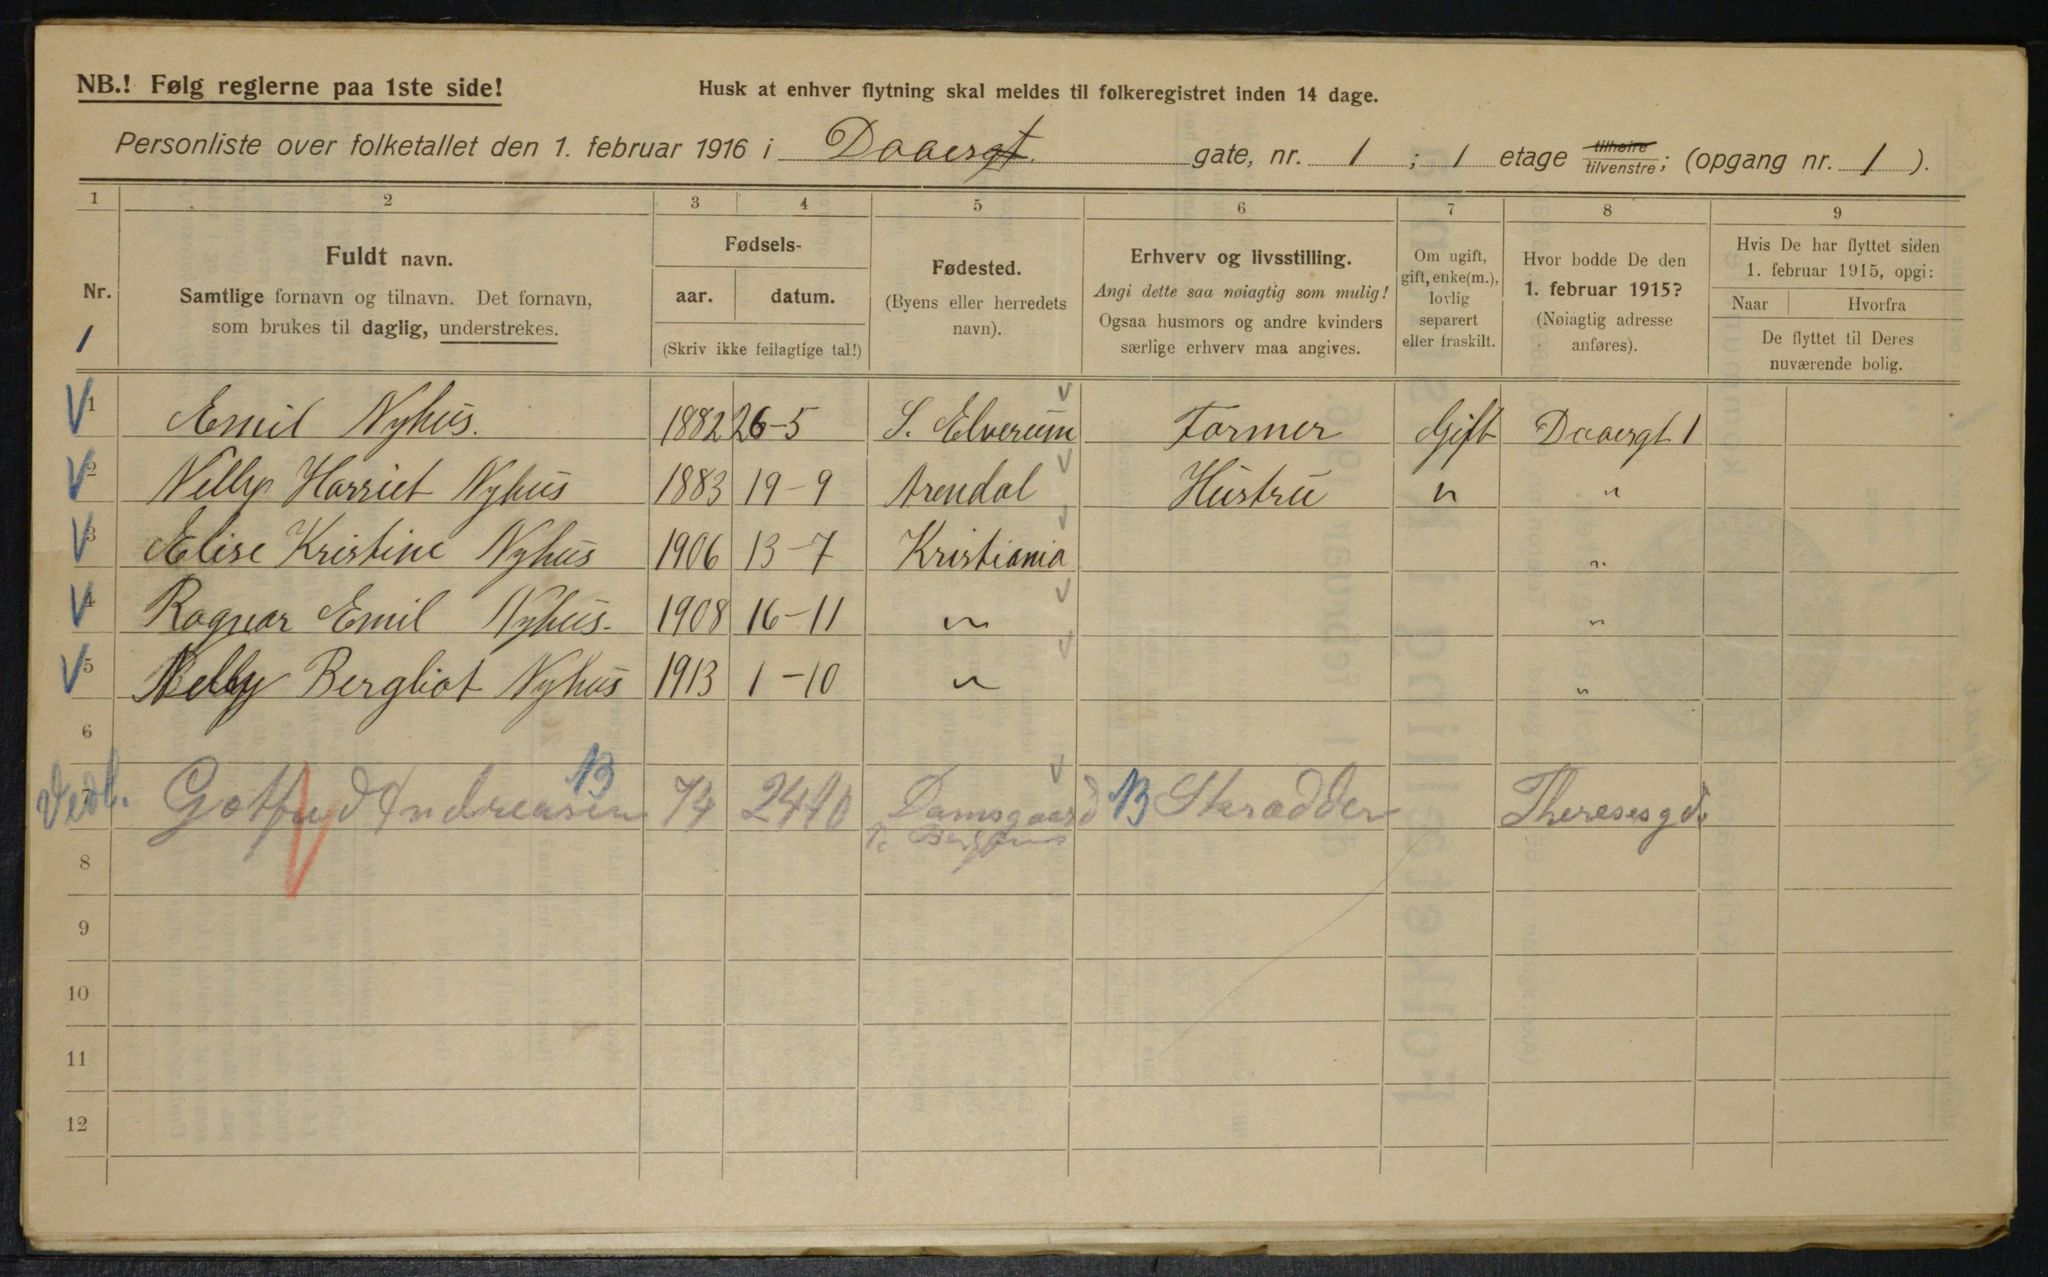 NB.! Følg reglerne paa 1ste side!
Husk at enhver flytning skal meldes til folkeregistret inden 14 dage.
Personliste over folketallet den 1. februar 1916 i Daaergt. gate, nr. 1 ; 1 etage tilhøire/tilvenstre; (opgang nr. 1 ).
1 2 3 4 5 6 7 8 9
Nr.
1
Fuldt navn.
Samtlige fornavn og tilnavn. Det fornavn,
som brukes til daglig, understrekes.
Fødsels-
aar. datum.
(Skriv ikke feilagtige tal!)
Fødested.
(Byens eller herredets
navn).
Erhverv og livsstilling.
Angi dette saa nøiagtig som mulig!
Ogsaa husmors og andre kvinders
særlige erhverv maa angives.
Om ugift,
gift, enke(m.),
lovlig
separert
eller fraskilt.
Hvor bodde De den
1. februar 1915?
(Nøiagtig adresse
anføres).
Hvis De har flyttet siden
1. februar 1915, opgi:
Naar Hvorfra
De flyttet til Deres
nuværende bolig.
V 1 Emil Nyhus. 1882 26-5 S. Elverum V Former Gift Daaergt 1
V 2 Nelly Harriet Nyhus 1883 19-9 Arendal V Hustru " "
V 3 Elise Kristine Nyhus 1906 13-7 Kristiania V "
V 4 Ragnar Emil Nyhus. 1908 16-11 " V "
V 5 Nelly Bergliot Nyhus 1913 1-10 " V "
6
7 Gotfred Andreasen B 74 Damsgaard V B Skrædder Theresesgd.
8
9
10
11
12